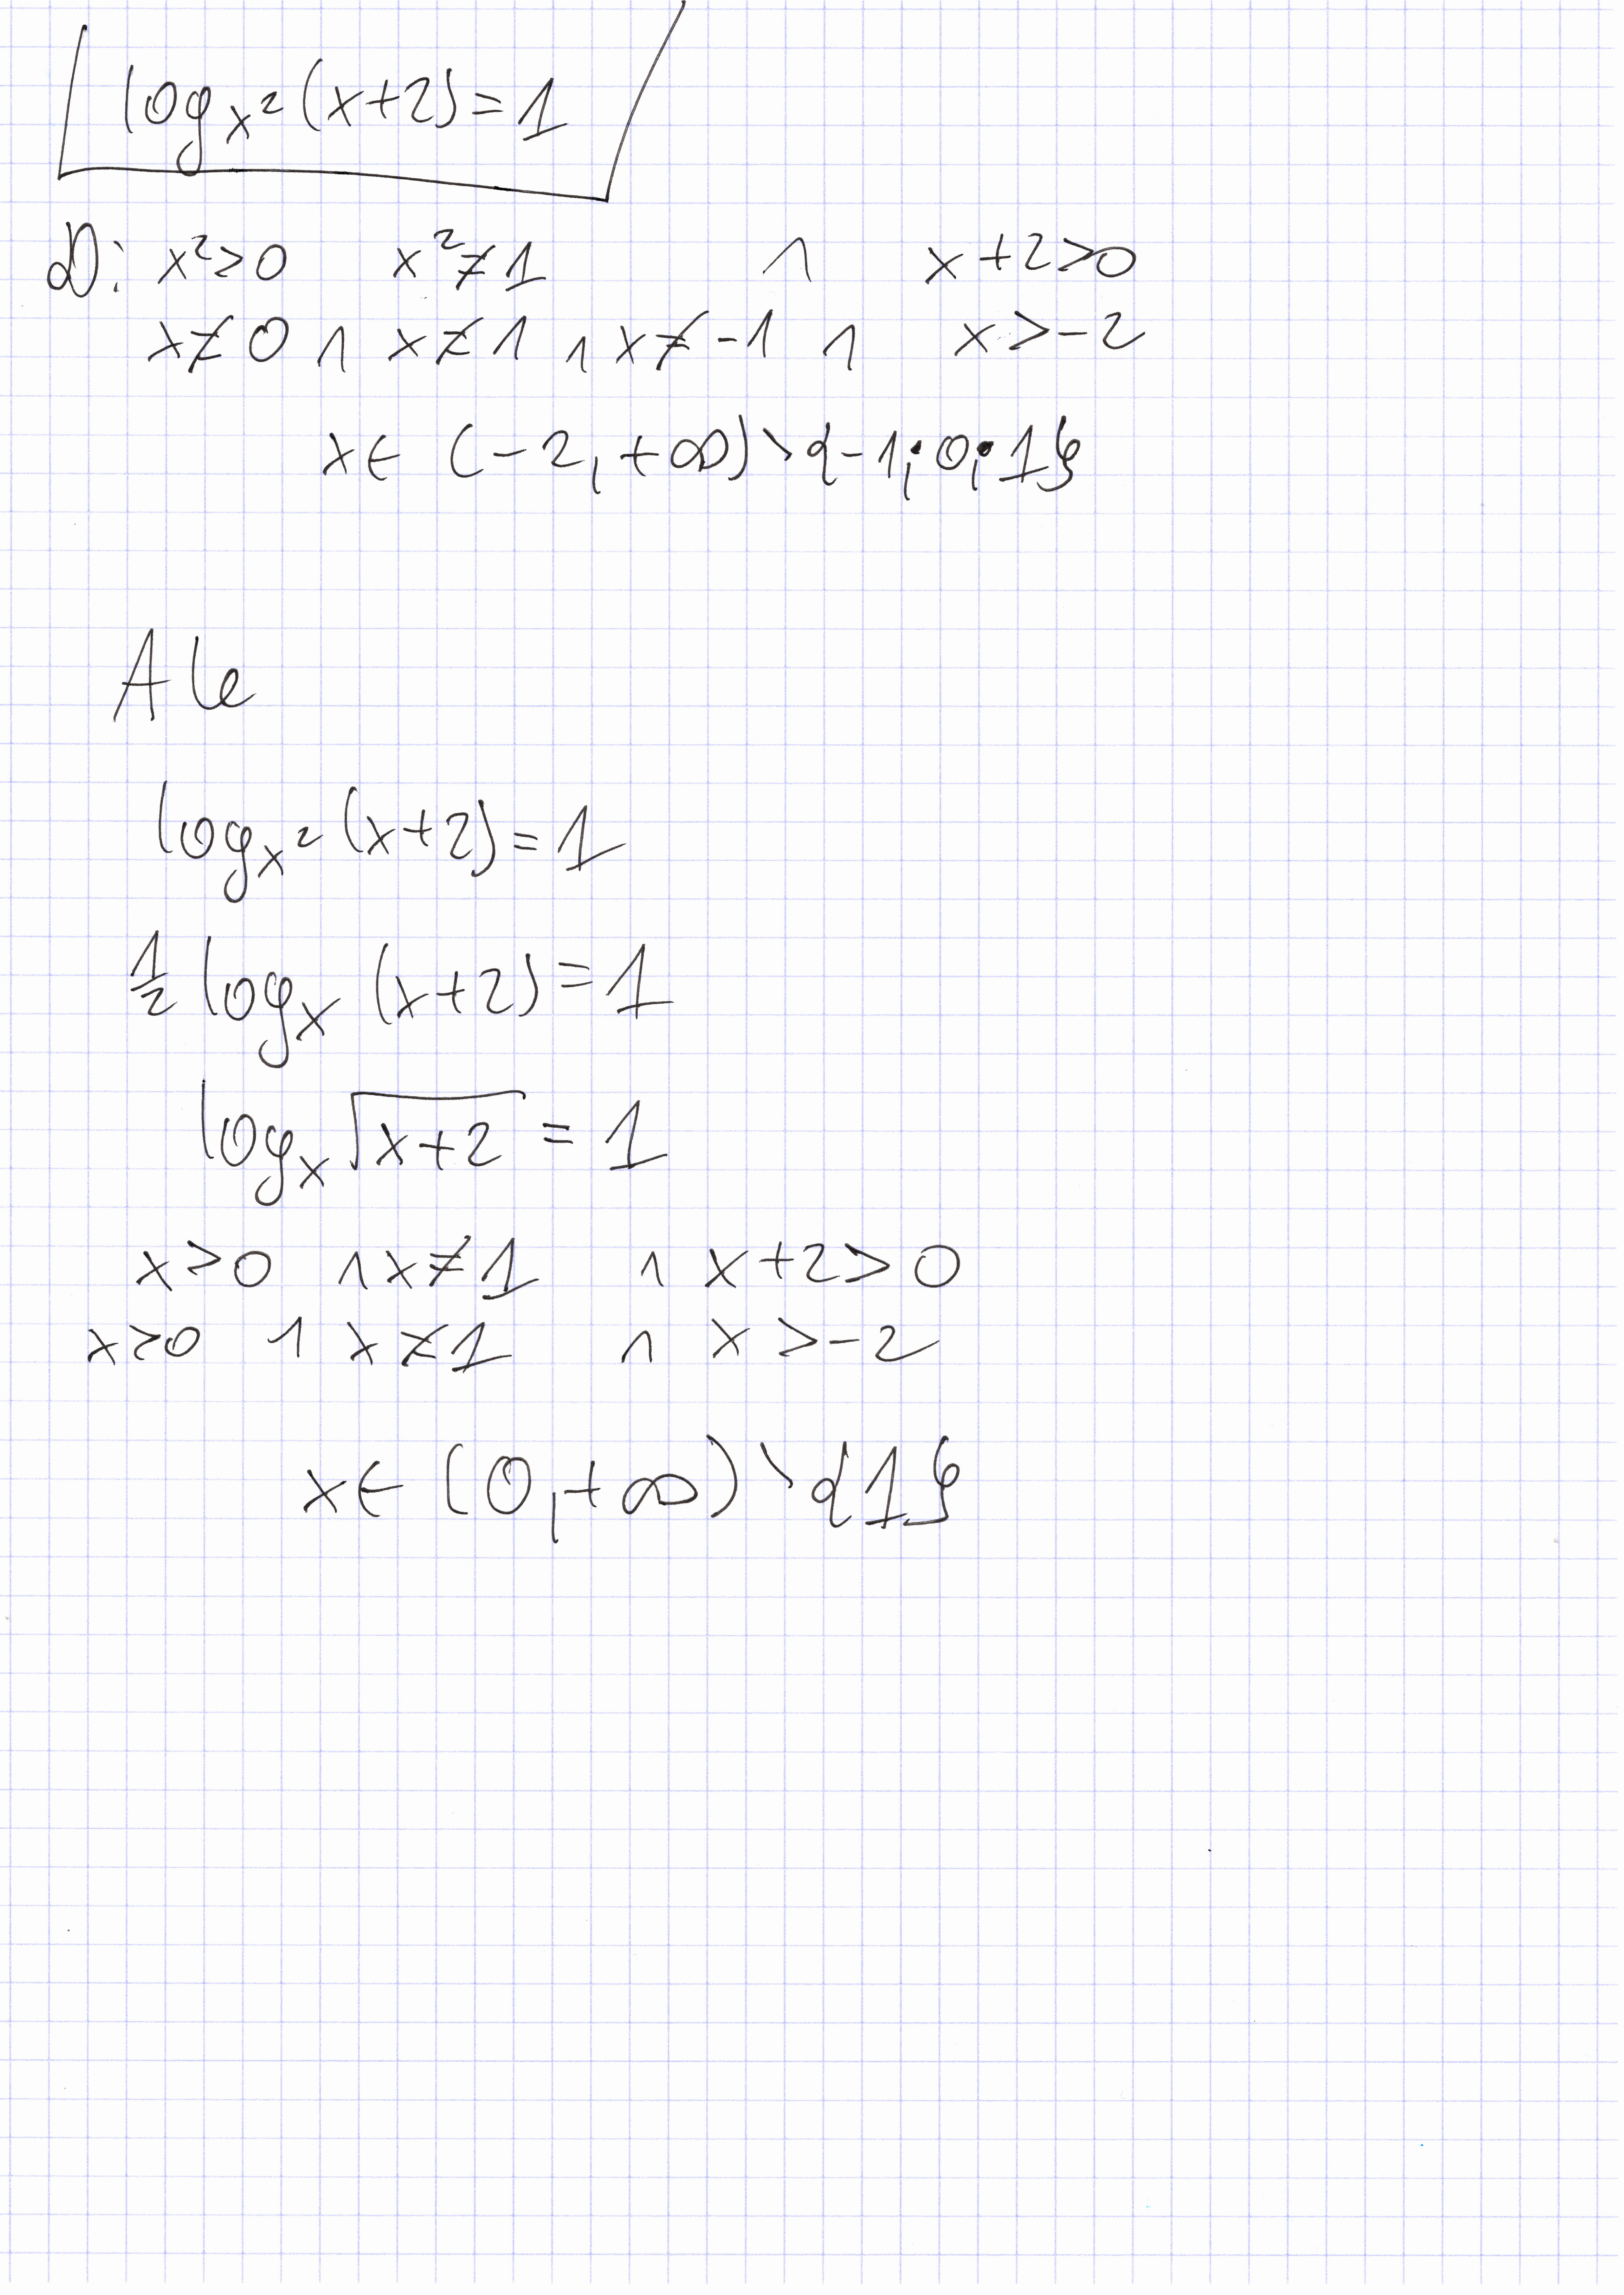 log_{x²}(x+2)=1
D: x²>0 x²≠1 ∧ x+2>0
x≠0 ∧ x≠1 ∧ x≠-1 ∧ x>-2
x∈ (-2,+∞)∖{-1;0;1}
Ale
log_{x²}(x+2)=1
½ log_x (x+2)=1
log_x √(x+2) = 1
x>0 ∧ x≠1 ∧ x+2>0
x>0 ∧ x≠1 ∧ x>-2
x∈ (0,+∞)∖{1}